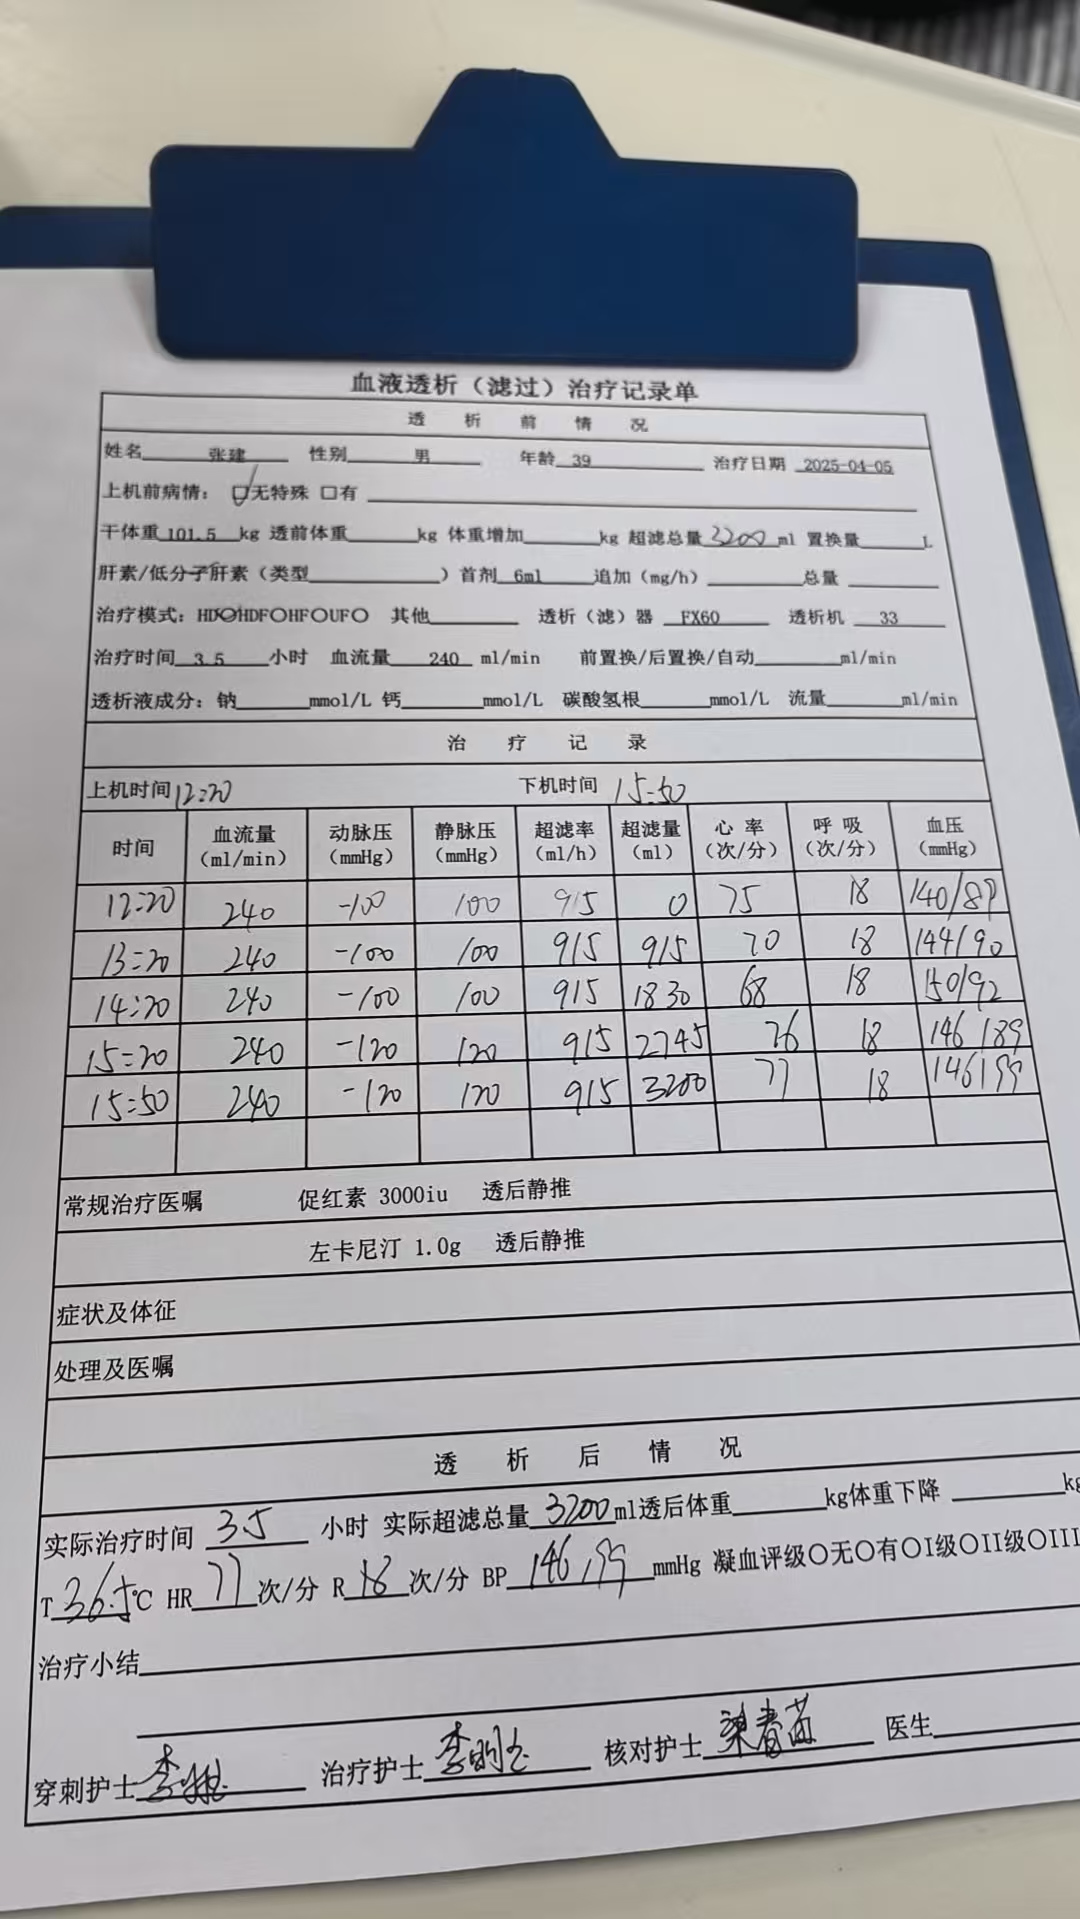 血液透析（滤过）治疗记录单
透 析 前 情 况
姓名 张建 性别 男 年龄 39 治疗日期 2025-04-05
上机前病情： ☑无特殊 □有
干体重 101.5 kg 透前体重 kg 体重增加 kg 超滤总量 3200 ml 置换量 L
肝素/低分子肝素（类型 ）首剂 6ml 追加（mg/h） 总量
治疗模式：HD○HDF○HF○UF○ 其他 透析（滤）器 FX60 透析机 33
治疗时间 3.5 小时 血流量 240 ml/min 前置换/后置换/自动 ml/min
透析液成分：钠 mmol/L 钙 mmol/L 碳酸氢根 mmol/L 流量 ml/min
治 疗 记 录
上机时间 12:20 下机时间 15:50
时间 血流量（ml/min） 动脉压（mmHg） 静脉压（mmHg） 超滤率（ml/h） 超滤量（ml） 心 率（次/分） 呼 吸（次/分） 血压（mmHg）
12:20 240 -100 100 915 0 75 18 140/89
13:20 240 -100 100 915 915 70 18 144/90
14:20 240 -100 100 915 1830 68 18 150/92
15:20 240 -120 120 915 2745 76 18 146/89
15:50 240 -120 120 915 3200 77 18 146/99
常规治疗医嘱 促红素 3000iu 透后静推
左卡尼汀 1.0g 透后静推
症状及体征
处理及医嘱
透 析 后 情 况
实际治疗时间 3.5 小时 实际超滤总量 3200 ml透后体重 kg体重下降 kg
T 36.5 ℃ HR 77 次/分 R 18 次/分 BP 146/99 mmHg 凝血评级○无○有○I级○II级○III
治疗小结
穿刺护士 治疗护士 核对护士 梁春苗 医生